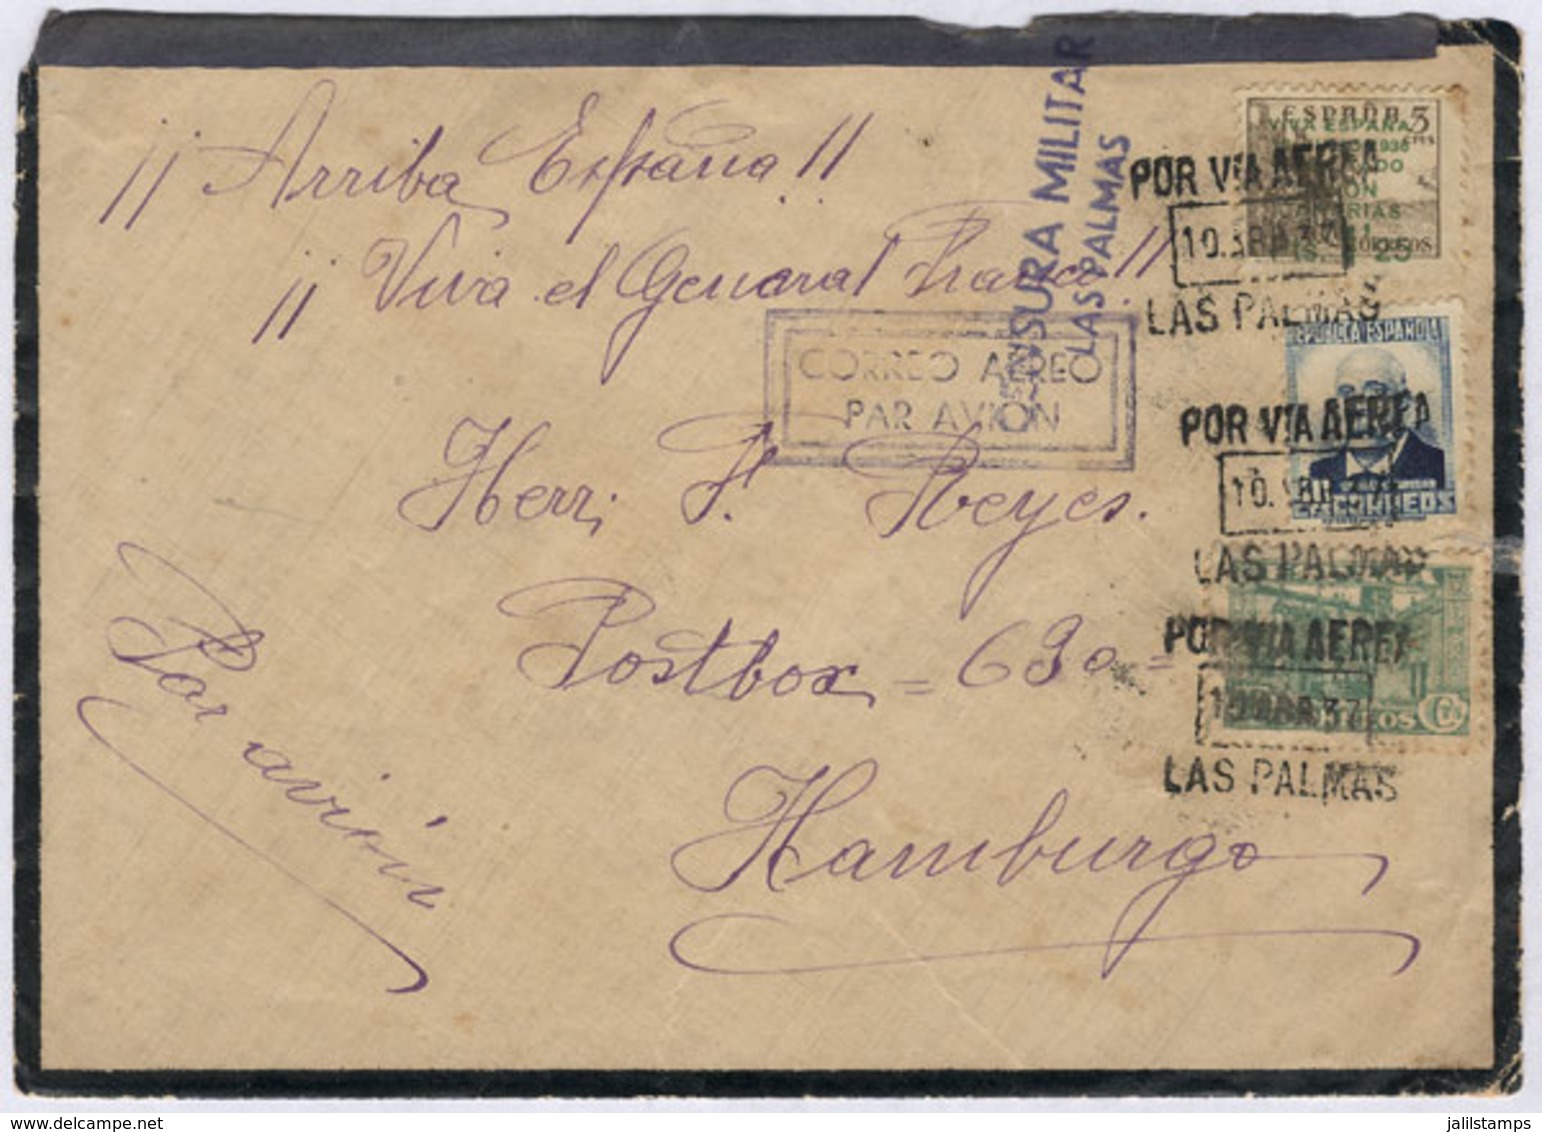 ¡¡ Arriba España !!
¡¡ Viva el General Franco !!
Herrn F. Reyes.
Postbox = 630 =
Hamburgo
Por avión
CENSURA MILITAR
LAS PALMAS
CORREO AEREO
PAR AVION
POR VIA AEREA
10.ABR.37
LAS PALMAS
POR VIA AEREA
10.ABR.37
LAS PALMAS
POR VIA AEREA
10.ABR.37
LAS PALMAS
ESPAÑA 5
VIVA ESPAÑA
CANARIAS
CORREOS
REPUBLICA ESPAÑOLA
CORREOS
delcampe.net
jalilstamps